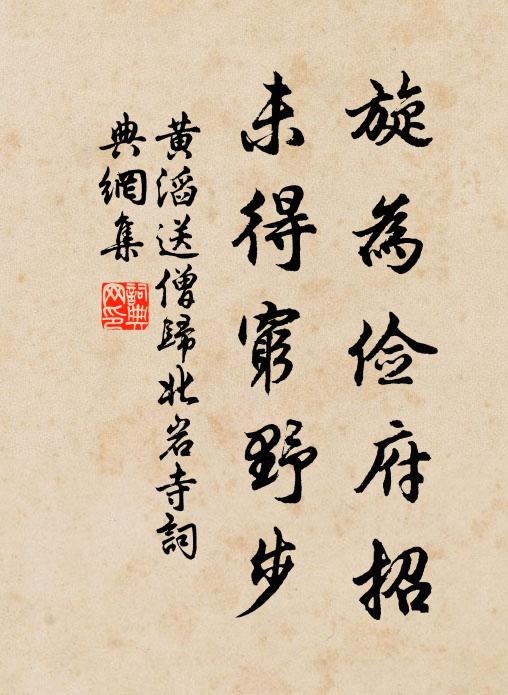 旋為儉府招
未得窮野步
黃滔送僧歸北岩寺詞
典網集
詞典網印